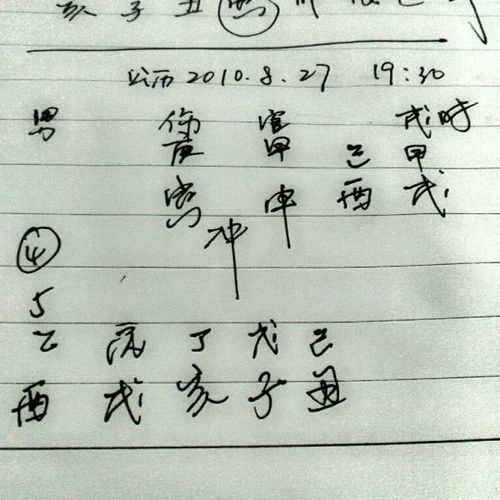 亥 子 丑
公历 2010.8.27 19:30
男 伤 官 戌时
庚 甲 己 甲
寅 申 酉 戌
冲
④
5
乙 丙 丁 戊 己
酉 戌 亥 子 丑